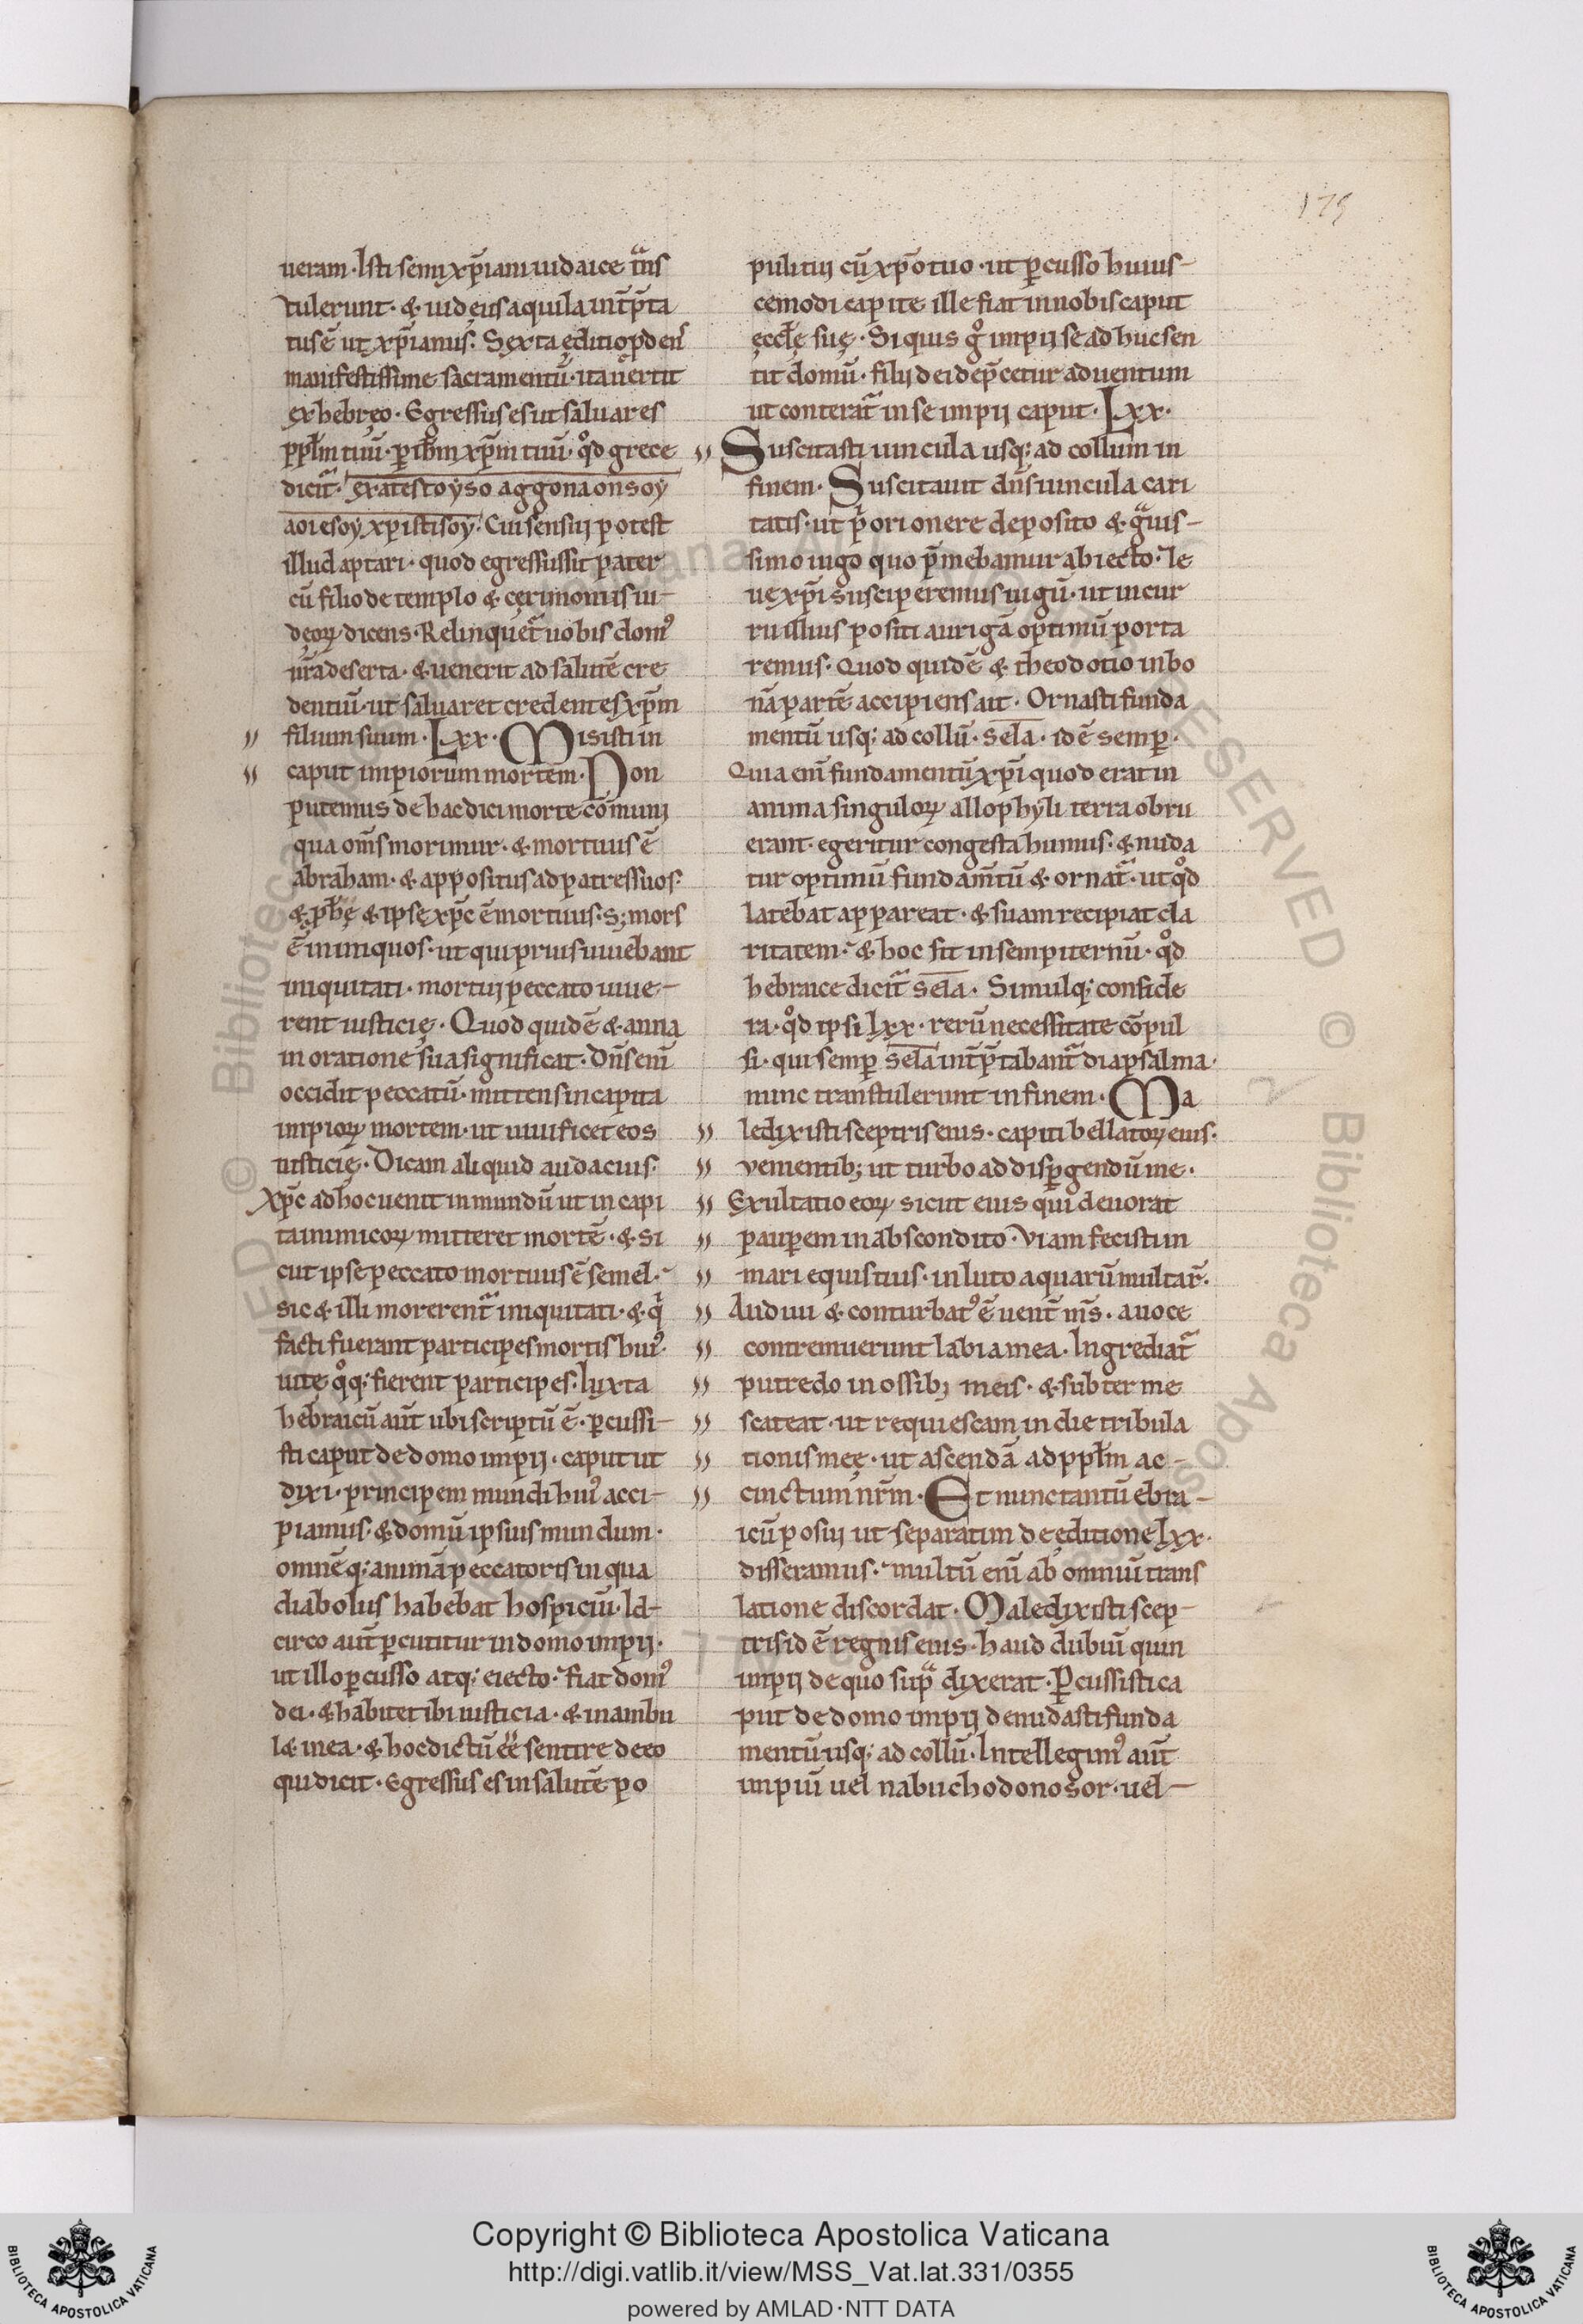 175
ueram · Isti semixp̄iani iudaice t̃ns
tulerunt · & iudęus aquila int̄p̄ta
tus ē ut xp̄ianus · Sexta editio pdens
manifestissime sacramentū · ita ũertit
ex hebręo · Egressus es ut saluares
pp̄lm tuū · p̱ ih̄m xp̄m tuū · qd̊ grece
dicit᷑ · exatestoyso aggona onsoy
aoiesoy xpistisoy · Cui sensui potest
illud aptari · quod egressus sit pater
cū filio de templo & cęrimoniis iu-
dęoꝝ dicens · Relinquet᷑ uobis domꝰ
ur̄a deserta · & uenerit ad salutē cre
dentiū · ut saluaret credentes xp̄m
filium suum · Lxx · Misisti in
caput impiorum mortem · Non
putemus de hac dici morte cōmuni
qua om̄s morimur · & mortuus ē
abraham · & appositus ad patres suos ·
& p̱ph̄ę & ipse xp̄c ē mortuus · s; mors
ē in iniquos · ut qui prius uiuebant
iniquitati · mortui peccato uiue-
rent iusticię · Quod quidē & anna
in oratione sua significat · Dn̄s enī
occidit peccatū · mittens in capita
impioꝝ mortem · ut uiuificet eos
iusticię · Dicam aliquid audacius ·
Xp̄c ad hoc uenit in mundū ut in capi
ta inimicoꝝ mitteret mortē · & si
cut ipse peccato mortuus ē semel ·
sic & illi morerent᷑ iniquitati · & q̍
facti fuerant participes mortis huiꝰ ·
uitę q̊q; fierent participes · Iuxta
hebraicū aūt ubi scriptū ē · p̱cussi-
sti caput de domo impii · caput ut
dixi · principem mundi huiꝰ acci-
piamus · & domū ipsius mundum ·
omnēq; animā peccatoris in qua
diabolus habebat hospiciū · Id-
circo aūt p̱cutitur in domo impii ·
ut illo p̱cusso atq; eiecto · fiat domꝰ
dei · & habitet ibi iusticia · & in ambu
læ mea · & hoc dictū ēē sentire deeo
qui dicit · Egressus es in salutē po
puli tui cū xp̄o tuo · ut p̱cusso huius-
cemodi capite ille fiat in nobis caput
ęccl̄ę suę · Si quis g̊ impii se adhuc sen
tit domū · filii dei dep̄cetur aduentum
ut conterat᷑ in se impii caput · Lxx ·
Suscitasti uincula usq; ad collum in
finem · Suscitauit dn̄s uincula cari
tatis · ut p̍ori onere deposito & gͣuis-
simo iugo quo p̄mebamur abiecto · le
ue xp̄i susciperemus iugū · ut in cur
ru illius positi aurigā optimū porta
remus · Quod quidē & theodotio in bo
nā partē accipiens ait · Ornasti funda
mentū usq; ad collū · sela · id ē semp̱ ·
Quia enī fundamentū xp̄i quod erat in
anima singuloꝝ allophyli terra obru
erant · egeritur congesta humus · & nuda
tur optimū fundam̄tū & ornat᷑ · ut qd̊
latebat appareat · & suam recipiat cla
ritatem · & hoc fit in sempiternū · qd̊
hebraice dicit᷑ sela · Simulq; conside
ra · qd̊ ipsi Lxx · rerū necessitate cōpul
si · qui semp̱ sela int̄p̄tabant᷑ diapsalma ·
nunc transtulerunt in finem · Ma
ledixisti sceptris eius · capiti bellatoꝝ eius ·
venientib; ut turbo ad disp̱gendū me ·
Exultatio eoꝝ sicut eius qui deuorat
paup̱em in abscondito · Viam fecisti in
mari equis tuis · in luto aquarū multar̄ ·
Audiui & conturbatꝰ ē uent̄ m̄s · a uoce
contremuerunt labia mea · Ingrediat᷑
putredo in ossib; meis · & subter me
scateat · ut requiescam in die tribula
tionis meę · ut ascendā ad pp̄lm ac-
cinctum nr̄m · Et nunc tantū ebra-
icū posui ut separatim de editione Lxx ·
disseramus · multū enī ab omniū trans
latione discordat · Maledixisti scep-
tris id ē regnis eius · haud dubiū quin
impii de quo supͣ dixerat · P̱cussisti ca
put de domo impii denudasti funda
mentū usq; ad collū · Intellegimꝰ aūt
impiū uel nabuchodonosor · uel-
Copyright © Biblioteca Apostolica Vaticana
http://digi.vatlib.it/view/MSS_Vat.lat.331/0355
powered by AMLAD·NTT DATA
BIBLIOTECA APOSTOLICA VATICANA
BIBLIOTECA APOSTOLICA VATICANA